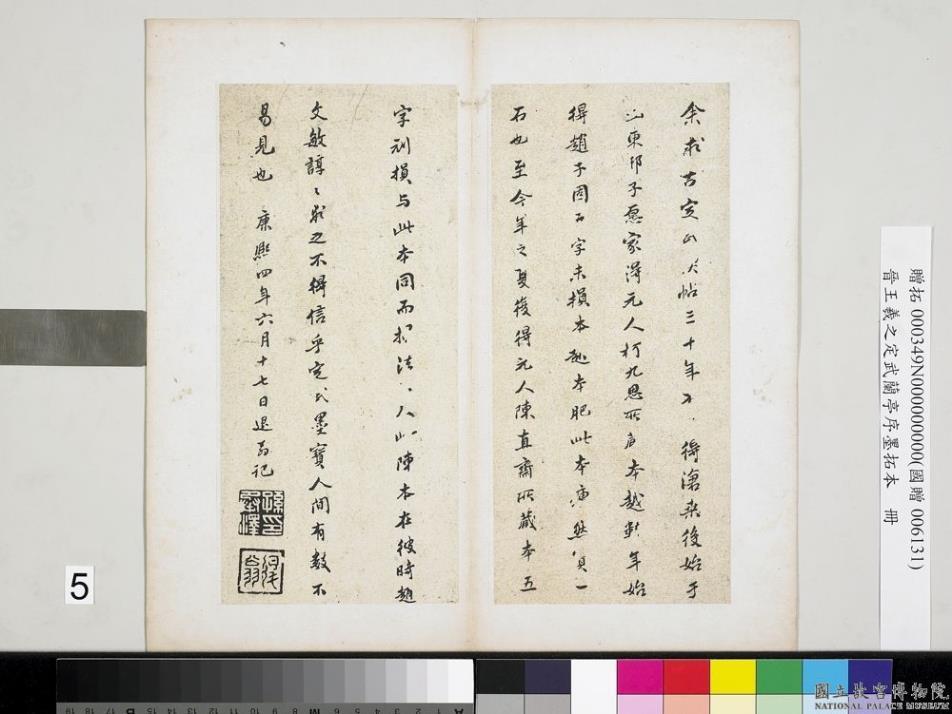 余求古定武帖三十年不得滄桑後始于
山東邢子愿家得元人柯九思所
本越數年始
得趙子固五字未損本趙本肥此本
真一
石也至今年之夏復得元人陳直齋所藏本五
字刓損与此本同而
法
此陳本在彼時趙
文敏諄〻求之不得信乎定武墨寶人間有數不
易見也 康熙四年六月十七日退翁記
5
贈拓 000349N000000000(國贈 006131)
晉王羲之定武蘭亭序墨拓本 冊
國立故宮博物院
NATIONAL PALACE MUSEUM